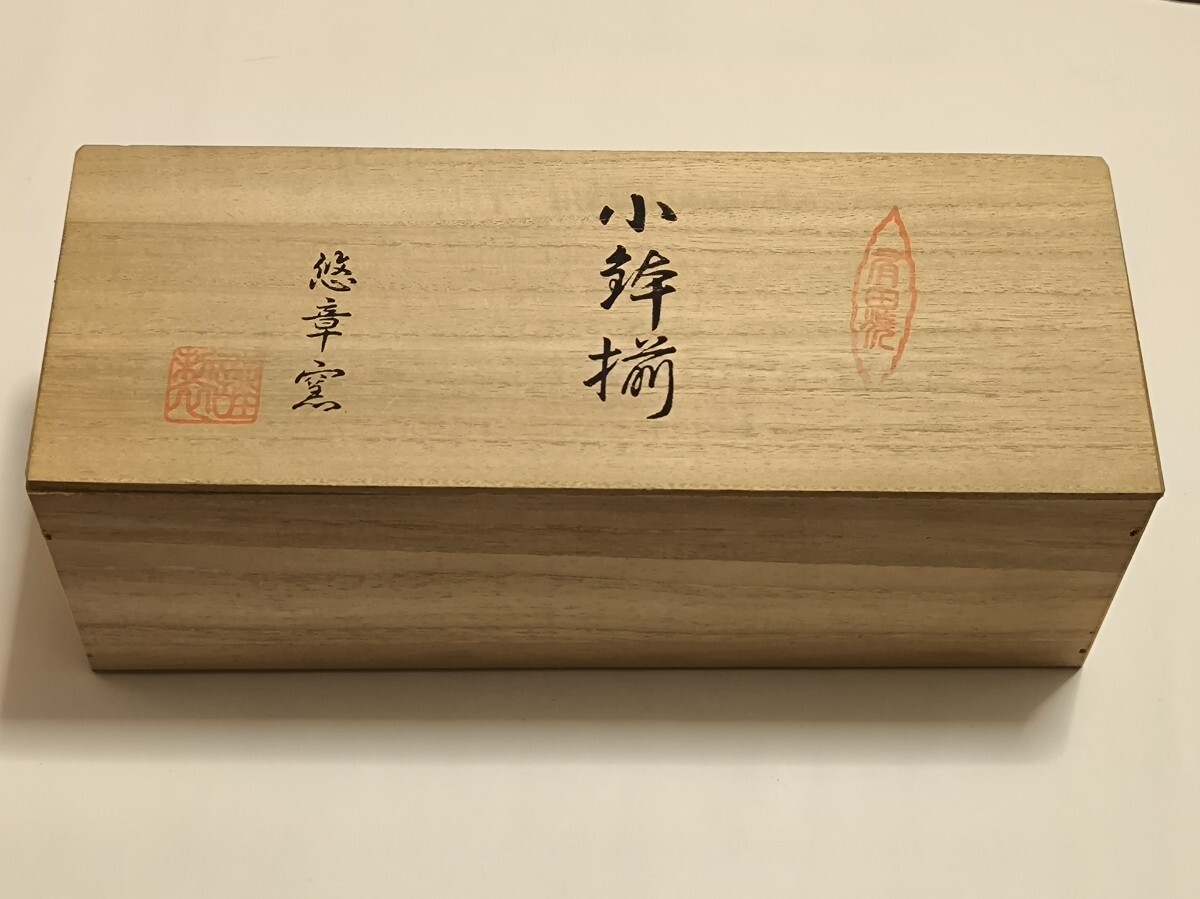 有田焼
小鉢揃
悠章窯